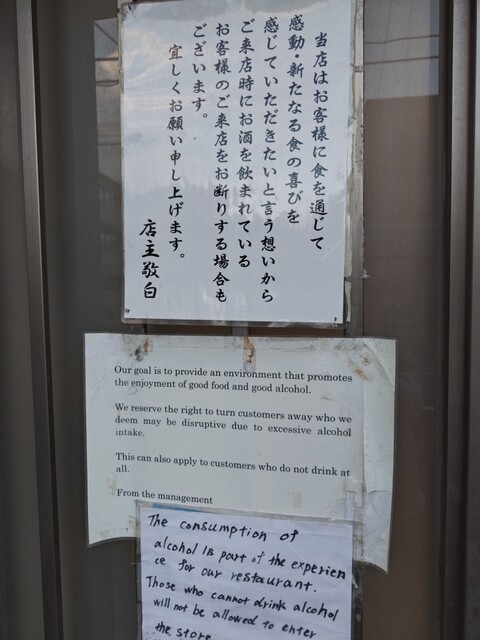 当店はお客様に食を通じて
感動・新たなる食の喜びを
感じていただきたいと言う想いから
ご来店時にお酒を飲まれている
お客様のご来店をお断りする場合も
ございます。
宜しくお願い申し上げます。
店主敬白
Our goal is to provide an environment that promotes
the enjoyment of good food and good alcohol.
We reserve the right to turn customers away who we
deem may be disruptive due to excessive alcohol
intake.
This can also apply to customers who do not drink at
all.
From the management
The consumption of
alcohol is part of the experien
ce for our restaurant.
Those who cannot drink alcohol
will not be allowed to enter
the store